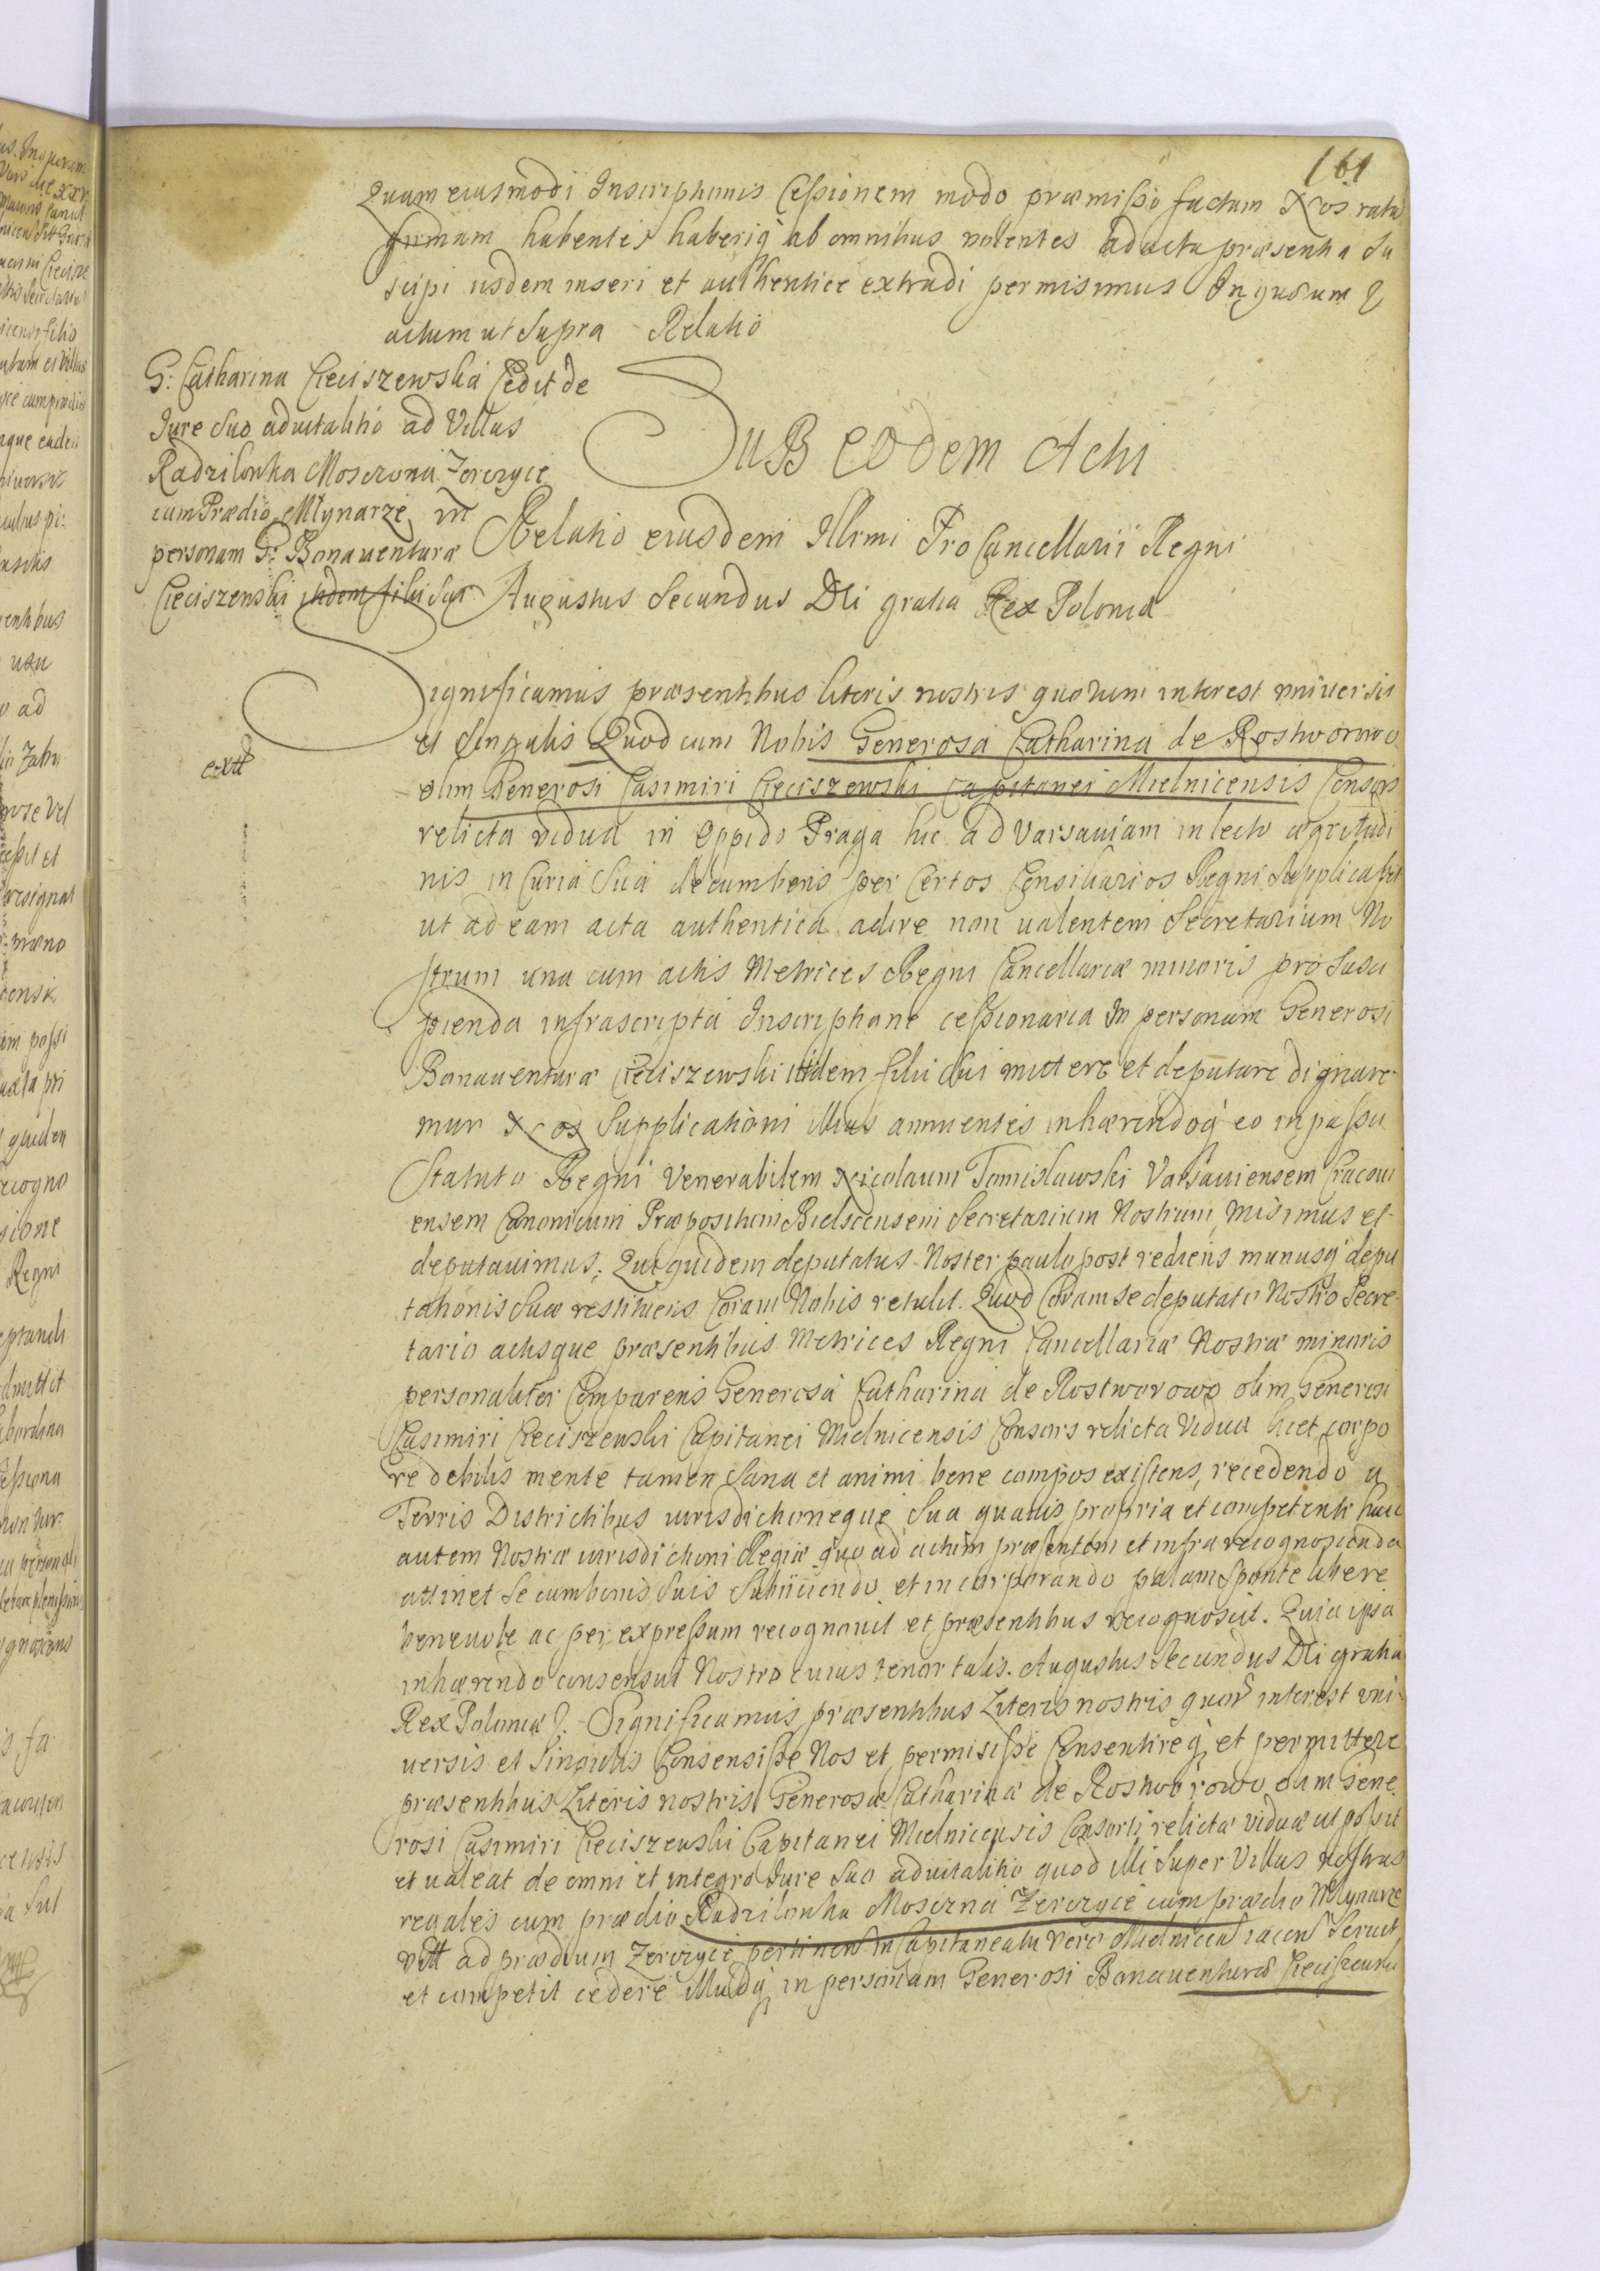 161
Quam eiusmodi Inscriptionis Cessionem modo præmisso factam Nos rata
firmam habentes haberiq ab omnibus volentes ad acta præsentia Su
scipi iisdem inseri et authentice extradi permisimus In quorum &
actum ut supra Relatio
G: Catharina Cieciszewska Cedit de
Jure Suo advitalitio ad Villas
Radzilowka Moszczona Zerczyce
cum Prædio Mlynarze in
personam G: Bonaventuræ
Cieciszewski itidem filii sui
SuB eodem Acti
Relatio eiusdem Illrmi ProCancellarii Regni
Augustus Secundus DEi gratia Rex Poloniæ
Significamus præsentibus literis nostris quorum interest universis
et Singulis Quod cum Nobis Generosa Catharina de Rostworowo
extt
olim Generosi Casimiri Cieciszewski Capitanei Mielnicensis Consors
relicta vidua in Oppido Praga hic ad Varsaviam in lecto ægritudi
nis in Curia Sua decumbens per Certos Consiliarios Regni Supplicasset
ut ad eam acta authentica adire non valentem Secretarium No
strum una cum actis Metrices Regni Cancellariæ minoris pro Susci
pienda infrascripta Inscriptione cessionaria In personam Generosi
Bonaventuræ Cieciszewski itidem filii sui mittere et deputare dignare
mur Nos Supplicationi illius annuentes inhærendoq eo in passu
Statuto Regni Venerabilem Nicolaum Tomisławski Varsaviensem Cracovi
ensem Canonicum Præpositum Bielscensem Secretarium Nostrum misimus et
deputavimus; Qui quidem deputatus Noster paulo post rediens munusq depu
tationis suæ restituens Coram Nobis retulit. Quod Coram se deputato Nostro Secre
tario actisque præsentibus Metrices Regni Cancellariæ Nostræ minoris
personaliter Comparens Generosa Catharina de Rostworowo olim Generosi
Casimiri Cieciszewski Capitanei Mielnicensis Consors relicta Vidua licet corpo
re debilis mente tamen Sana et animi bene compos existens, recedendo a
Terris Districtibus iurisdictioneque Sua quavis propria et competenti huic
autem Nostræ iurisdictioni Regiæ quo ad actum præsentem et infra recognoscenda
attinet Se cum bonis Suis Subiiciendo et incorporando palam Sponte libere
benevole ac per expressum recognovit et præsentibus recognoscit. Quia ipsa
inhærendo consensui Nostro cuius tenor talis. Augustus Secundus DEi gratia
Rex Poloniæ &. Significamus præsentibus Literis nostris quor interest uni
versis et Singulis Consensisse Nos et permisisse Consentireq et permittere
præsentibus Literis nostris Generosæ Catharinæ de Rostworowo olim Gene
rosi Casimiri Cieciszewski Capitanei Mielnicensis Consorti relictæ viduæ ut possit
et valeat de omni et integro Jure Suo advitalitio quod illi Super Villas nostras
regales cum prædio Radzilowka Moszczna Zerczyce cum prædio Mlynarze
vtt ad prædium Zerczyce pertinen in Capitaneatu vero Mielnicen iacen Servit
et competit cedere illudq in personam Generosi Bonaventuræ Cieciszewski